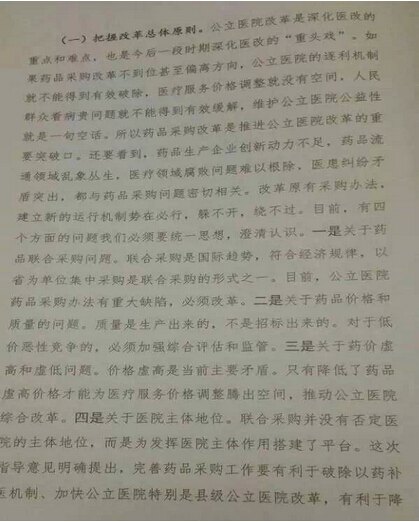 （一）把握改革总体原则。公立医院改革是深化医改的
重点和难点，也是今后一段时期深化医改的“重头戏”。如
果药品采购改革不到位甚至偏离方向，公立医院的逐利机制
就不能得到有效破除，医疗服务价格调整就没有空间，人民
群众看病贵问题就不能得到有效缓解，维护公立医院公益性
就是一句空话。所以药品采购改革是推进公立医院改革的重
要突破口。还要看到，药品生产企业创新动力不足，药品流
通领域乱象丛生，医疗领域腐败问题难以根除，医患纠纷矛
盾突出，都与药品采购问题密切相关。改革原有采购办法，
建立新的运行机制势在必行，躲不开，绕不过。目前，有四
个方面的问题我们必须要统一思想，澄清认识。一是关于药
品联合采购问题。联合采购是国际趋势，符合经济规律，以
省为单位集中采购是联合采购的形式之一。目前，公立医院
药品采购办法有重大缺陷，必须改革。二是关于药品价格和
质量的问题。质量是生产出来的，不是招标出来的。对于低
价恶性竞争的，必须加强综合评估和监管。三是关于药价虚
高和虚低问题。价格虚高是当前主要矛盾。只有降低了药品
虚高价格才能为医疗服务价格调整腾出空间，推动公立医院
综合改革。四是关于医院主体地位。联合采购并没有否定医
院的主体地位，而是为发挥医院主体作用搭建了平台。这次
指导意见明确提出，完善药品采购工作要有利于破除以药补
医机制、加快公立医院特别是县级公立医院改革，有利于降